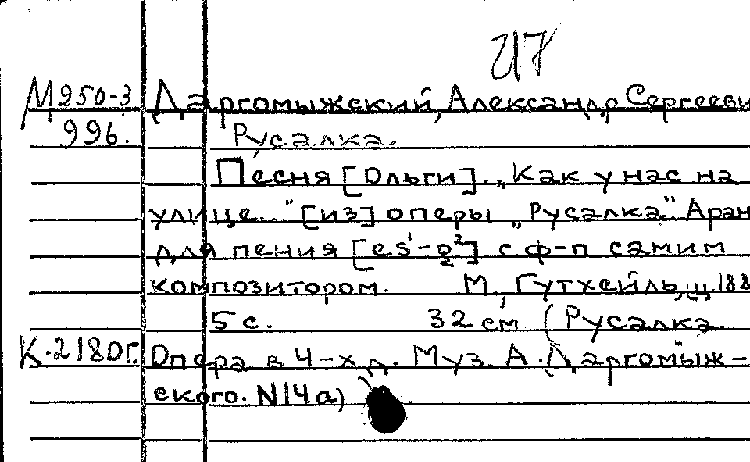 И7
М950-3 Даргомыжский, Александр Сергееви
996. Русалка.
Песня [Ольги]. „Как у нас на
улице..." [из] оперы „Русалка." Аран
для пения [es¹-g²] с ф-п самим
композитором. М., Гутхейль, ц. 188
5 с. 32 см (Русалка.
К-2180г. Опера в 4-х д. Муз. А. Даргомыж-
ского. N14а)